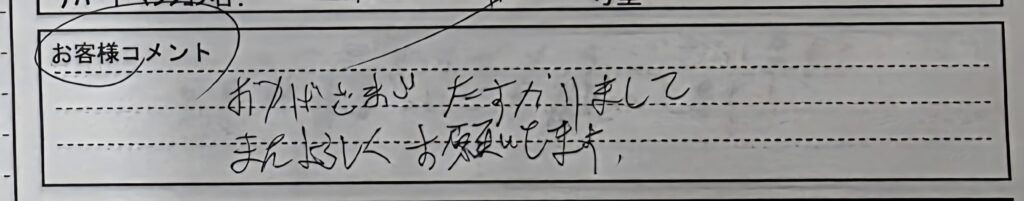 お客様コメント
おかげさまで たすかりまして
またよろしくお願いします。